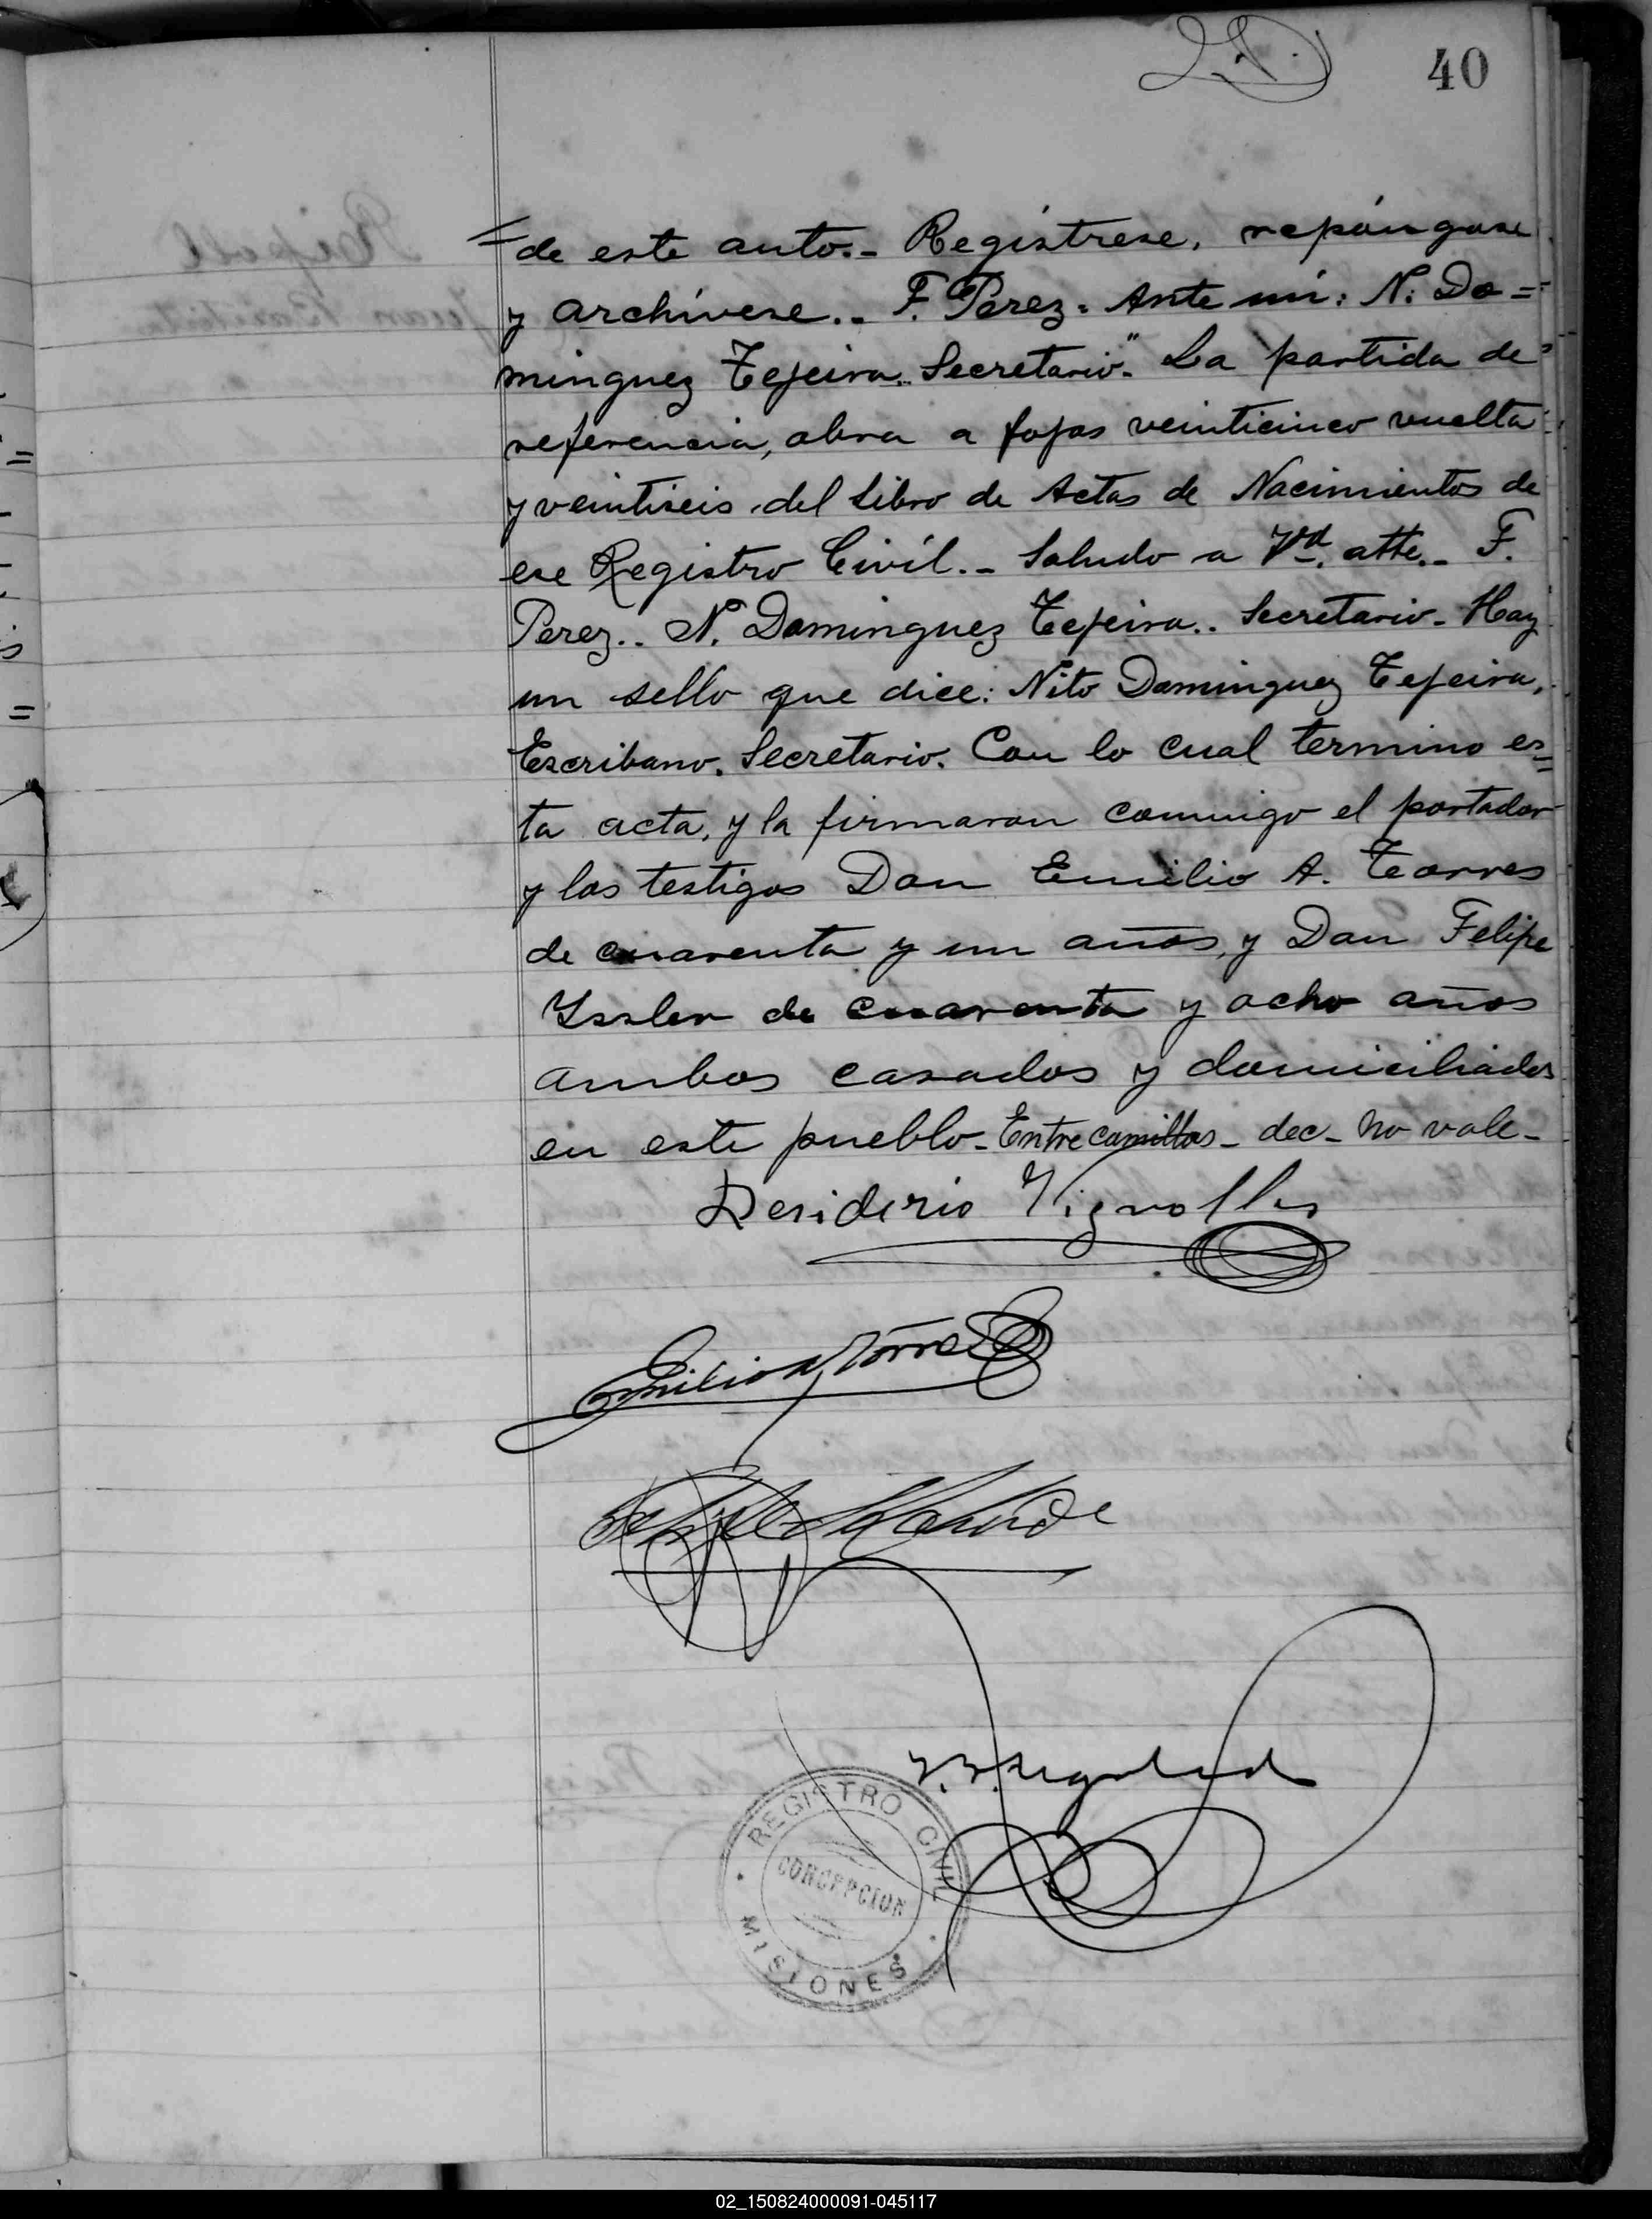 40
=de este auto.- Regístrese, repóngase
y archívese.- F. Perez. Ante mí: N. Do=
minguez Tejeira. Secretario". La partida de
referencia, obra a fojas veinticinco vuelta
y veintiseis del Libro de Actas de Nacimientos de
ese Registro Civíl.- Saludo a Vd. atte.- F.
Perez.. N. Dominguez Tejeira.. Secretario- Hay
un sello que dice: Nito Dominguez Tejeira,
Escribano. Secretario. Con lo cual termino es=
ta acta, y la firmaron conmigo el portador
y los testigos Don Emilio A. Torres
de cuarenta y un años, y Don Felipe
de cuarenta y ocho años
ambos casados y domiciliados
en este pueblo- Entre comillas- dec- no vale-
Desiderio Vignolles
Emilio A Torres
REGISTRO CIVIL
CONCEPCION
MISIONES
02_150824000091-045117